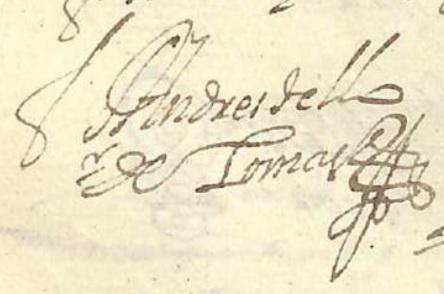 Andres de ll
de Tomas